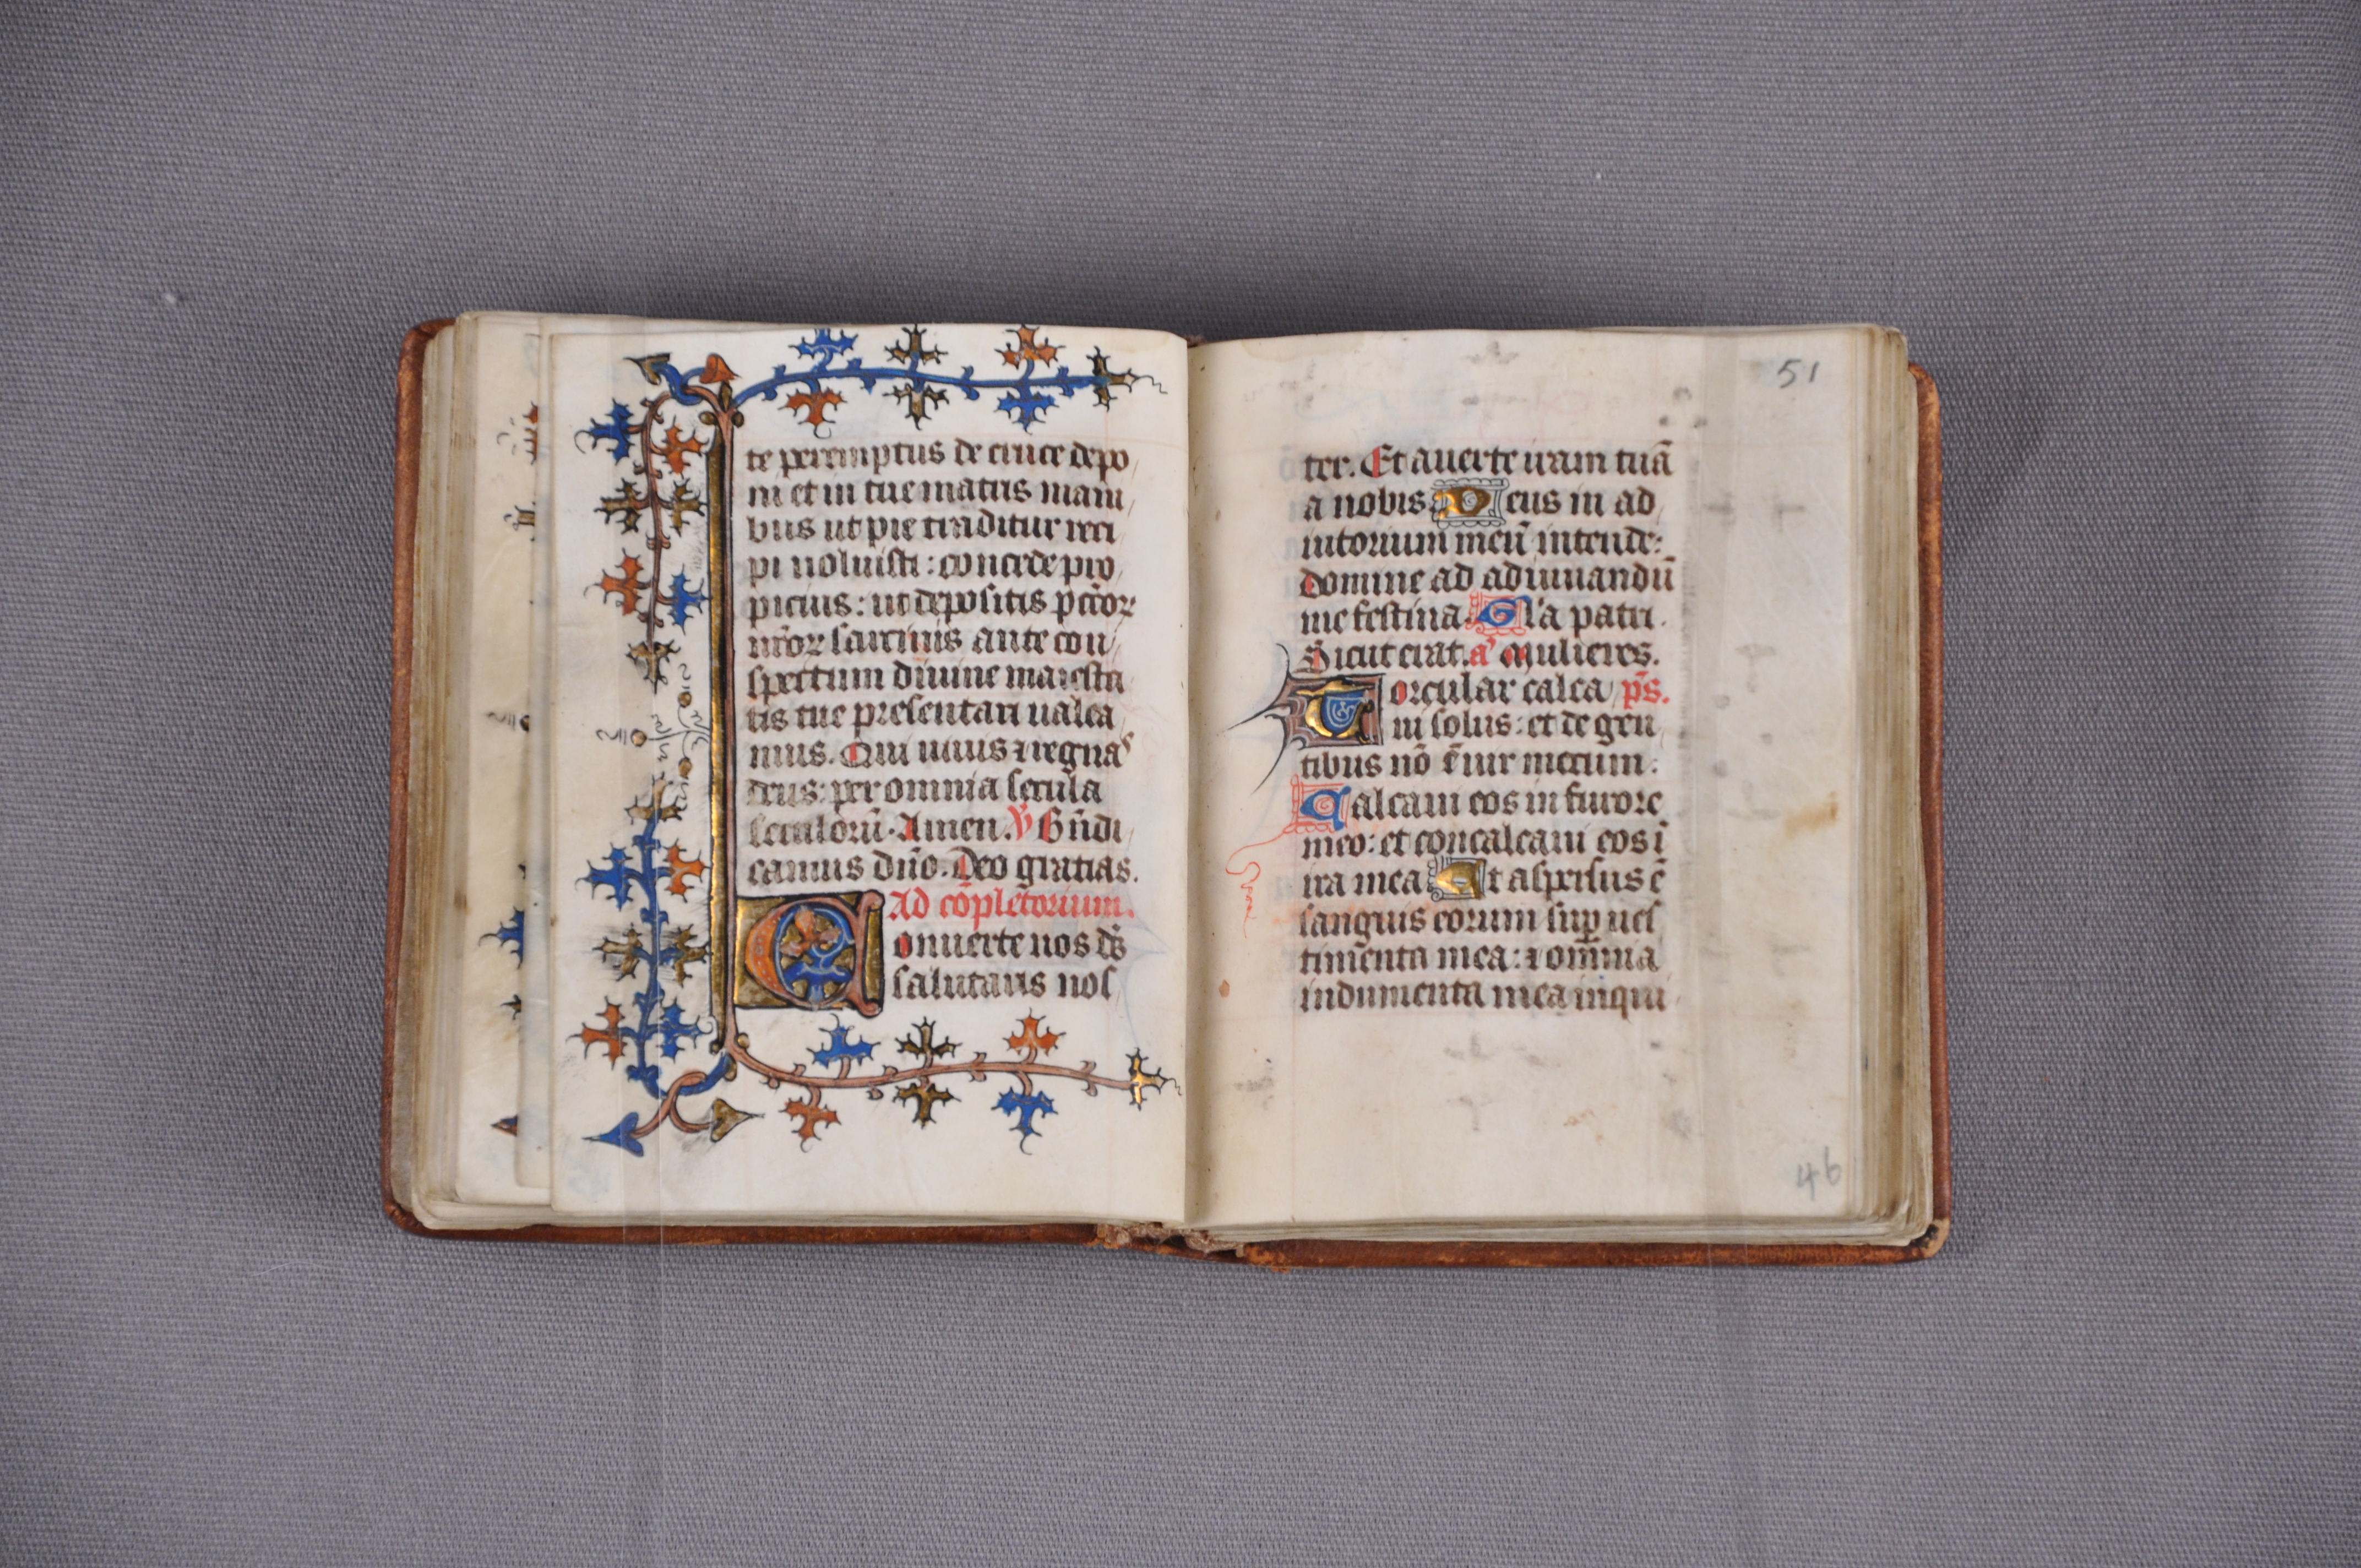 te peremptus de cruce depo
ni et in tue matris mani
bus ut pie traditur reci
pi uoluisti: concede pro
picius: ut depositis pctōr
nrōr sarcinis ante con
spectum diuine maiesta
tis tue presentari ualea
mus. Qui uiuis ⁊ regnas
deus: per omnia secula
seculorū. Amen. V̓ Bn̄di
camus dn̄o. Deo gratias.
Ad cōpletorium.
Conuerte nos ds̄
salutaris nos
51
ter. Et auerte iram tuā
a nobis. Deus in ad
iutorium meū intende:
domine ad adiuuandū
me festina. Gl'a patri.
Sicut erat. a' Mulieres.
Torcular calca ps̄.
ui solus: et de gen
tibus nō ē uir mecum:
Calcaui eos in furore
meo: et conculcaui eos ī
ira mea. Et aspersus ē
sanguis eorum sup ues
timenta mea: ⁊ omnia
indumenta mea inqui
46